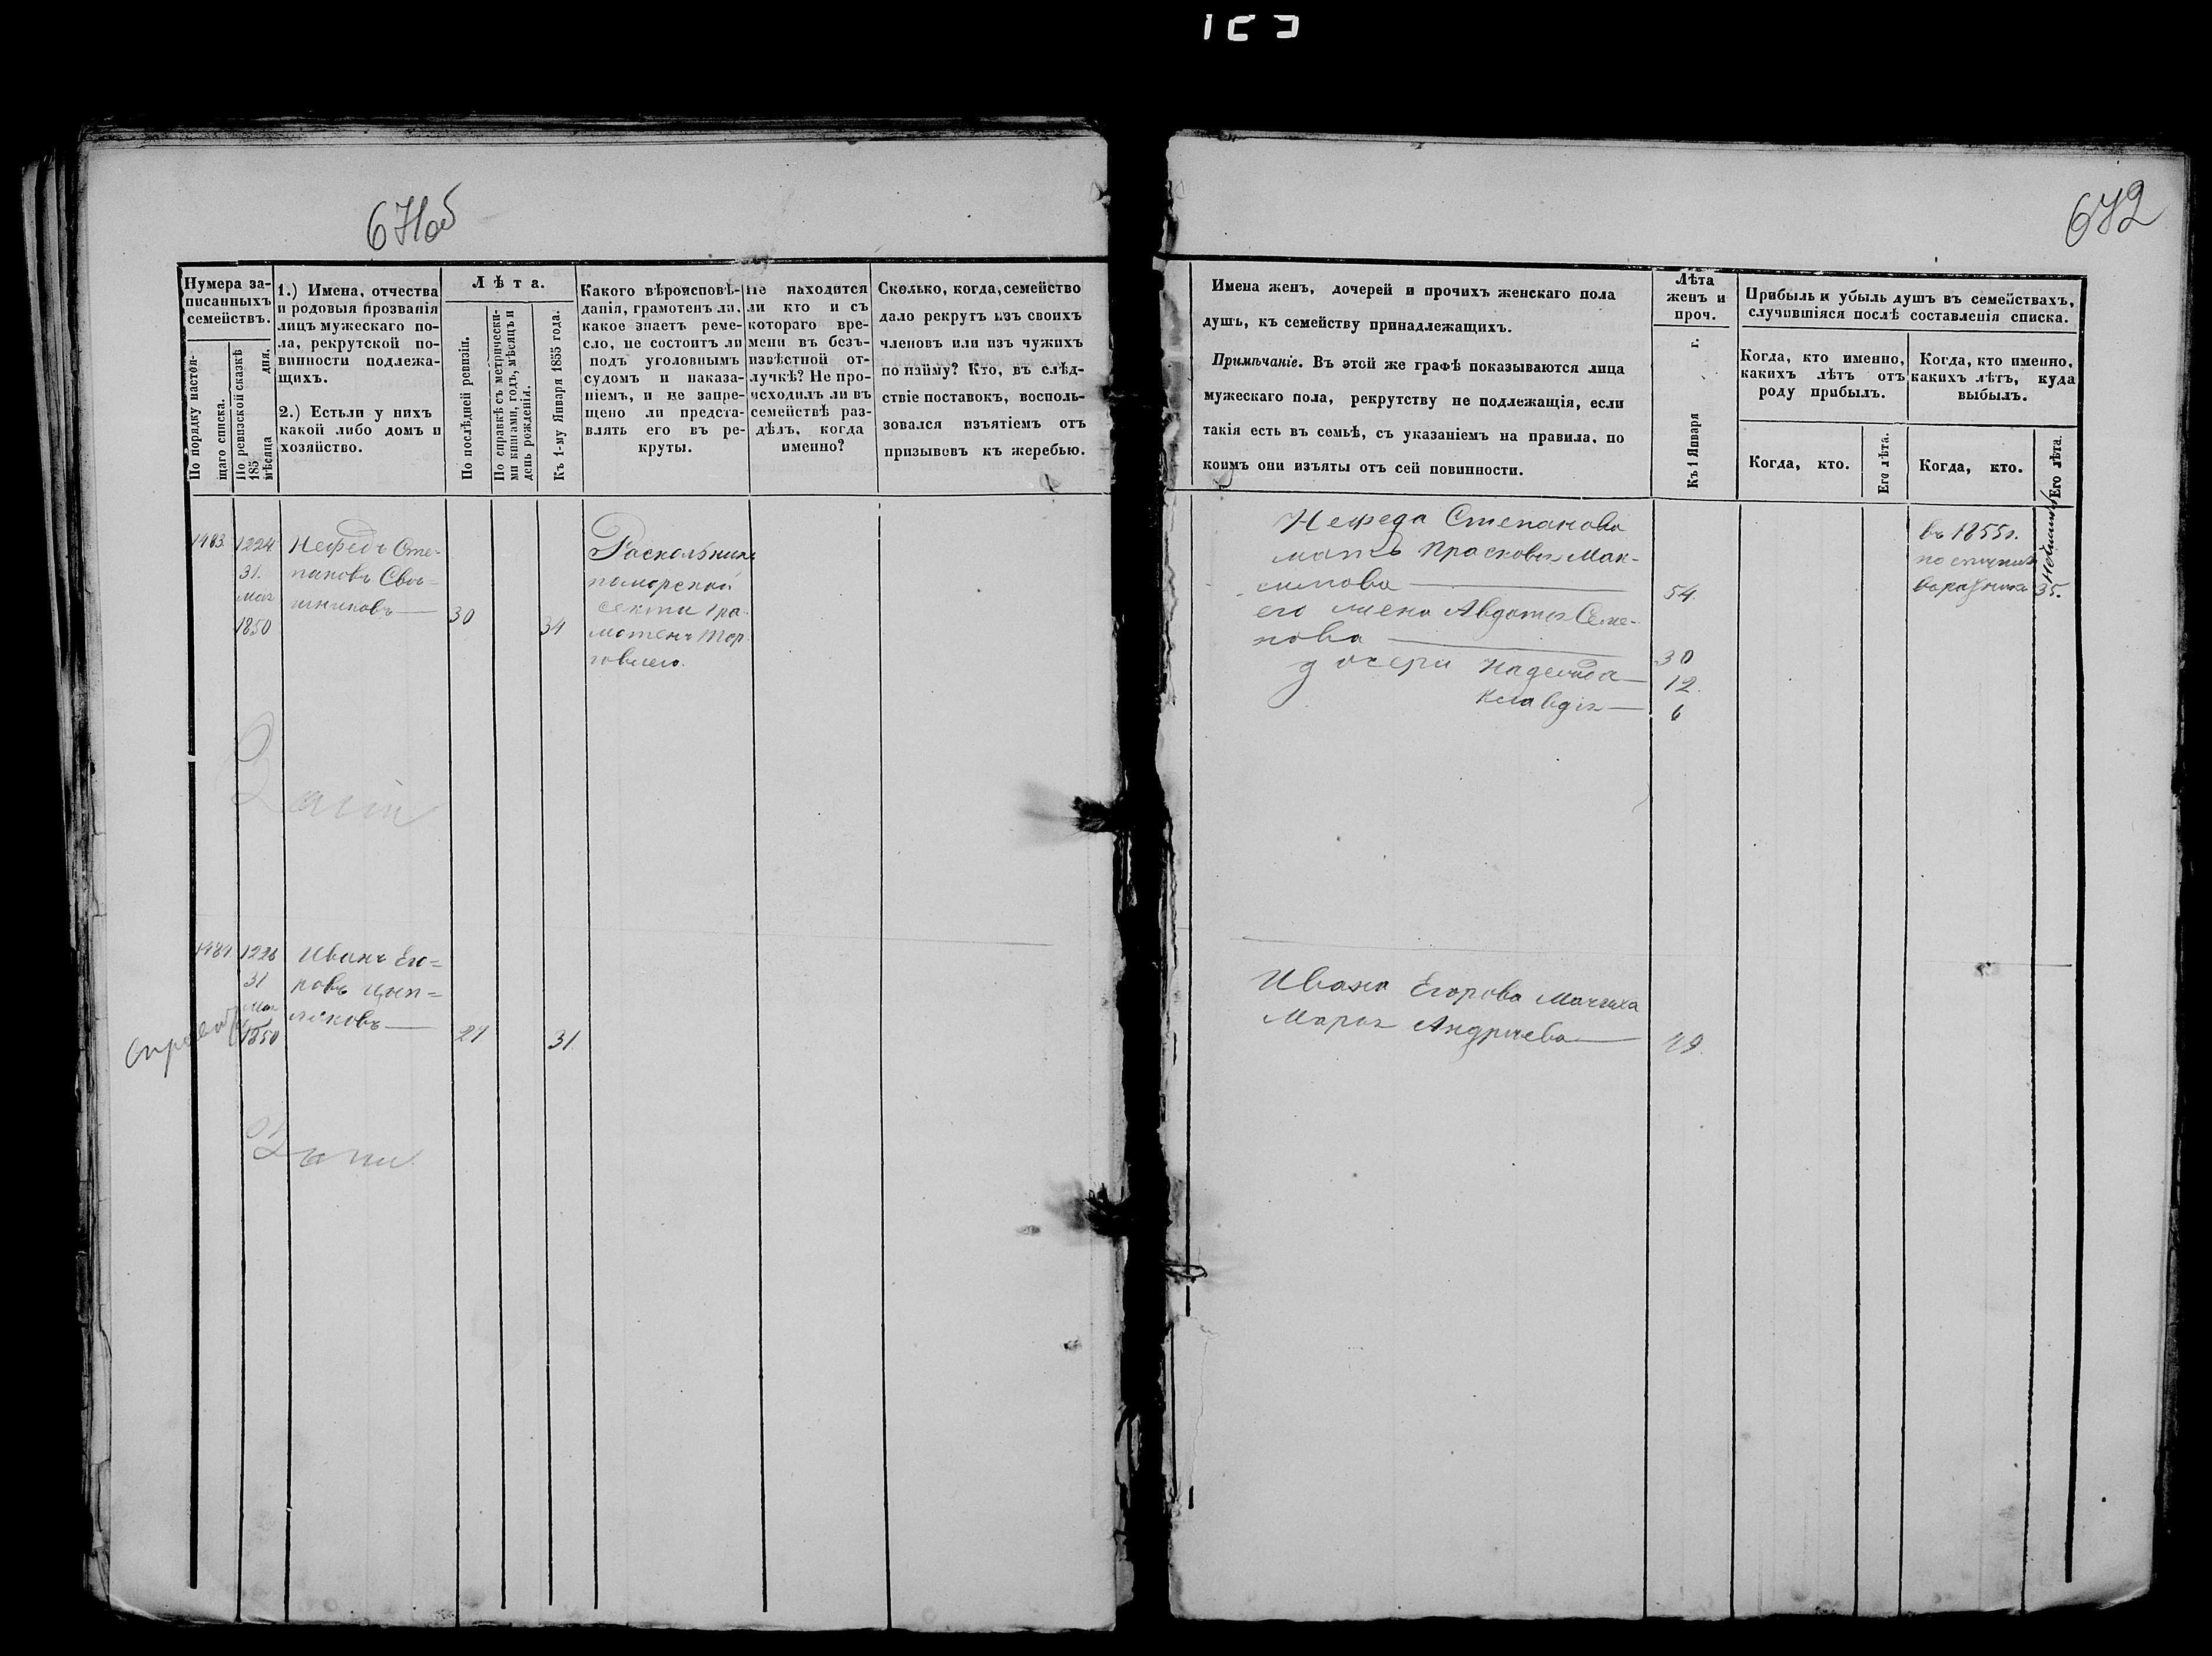 671 об
672
Нумера за-
писанныхъ
семействъ.
По порядку настоя-
щаго списка.
По ревизской сказкѣ
185
мѣсяца дня.
1.) Имена, отчества
и родовыя прозванія
лицъ мужескаго по-
ла, рекрутской по-
винности подлежа-
щихъ.
2.) Естьли у нихъ
какой либо домъ и
хозяйство.
Лѣта.
По послѣдней ревизіи.
По справкѣ съ метрически-
ми книгами, годъ, мѣсяцъ и
день рожденія.
Къ 1-му Января 1855 года.
Какого вѣроисповѣ-
данія, грамотенъ ли,
какое знаетъ реме-
сло, не состоитъ ли
подъ уголовнымъ
судомъ и наказа-
ніемъ, и не запре-
щено ли предста-
влять его въ ре-
круты.
Не находится
ли кто и съ
котораго вре-
мени въ безъ-
извѣстной от-
лучкѣ? Не про-
исходилъ ли въ
семействѣ раз-
дѣлъ, когда
именно?
Сколько, когда, семейство
дало рекрутъ изъ своихъ
членовъ или изъ чужихъ
по найму? Кто, въ слѣд-
ствіе поставокъ, восполь-
зовался изъятіемъ отъ
призывовъ къ жеребью.
Имена женъ, дочерей и прочихъ женскаго пола
душъ, къ семейству принадлежащихъ.
Примѣчаніе. Въ этой же графѣ показываются лица
мужескаго пола, рекрутству не подлежащія, если
такія есть въ семьѣ, съ указаніемъ на правила, по
коимъ они изъяты отъ сей повинности.
Лѣта
женъ и
проч.
Къ 1 Января г.
Прибыль и убыль душъ въ семействахъ,
случившіяся послѣ составленія списка.
Когда, кто именно,
какихъ лѣтъ отъ
роду прибылъ.
Когда, кто.
Его лѣта.
Когда, кто именно,
какихъ лѣтъ, куда
выбылъ.
Когда, кто.
Его лѣта.
1483
1224
31.
мая
1850
Нефедъ Сте-
пановъ
30
34
Раскольникъ
поморской
секты гра-
мотенъ тор-
говлею.
Нефеда Степанова
мать Прасковья Мак-
симова
54.
его жена Авдотья Семе-
нова
30
дочери Надежда
12.
Клавдія
6
въ 1855 г.
35.
1484
1226
31
мая
1850
Иванъ Его-
ровъ Цып-
ляковъ
31.
Ивана Егорова Мачиха
Марья Андреева
49.